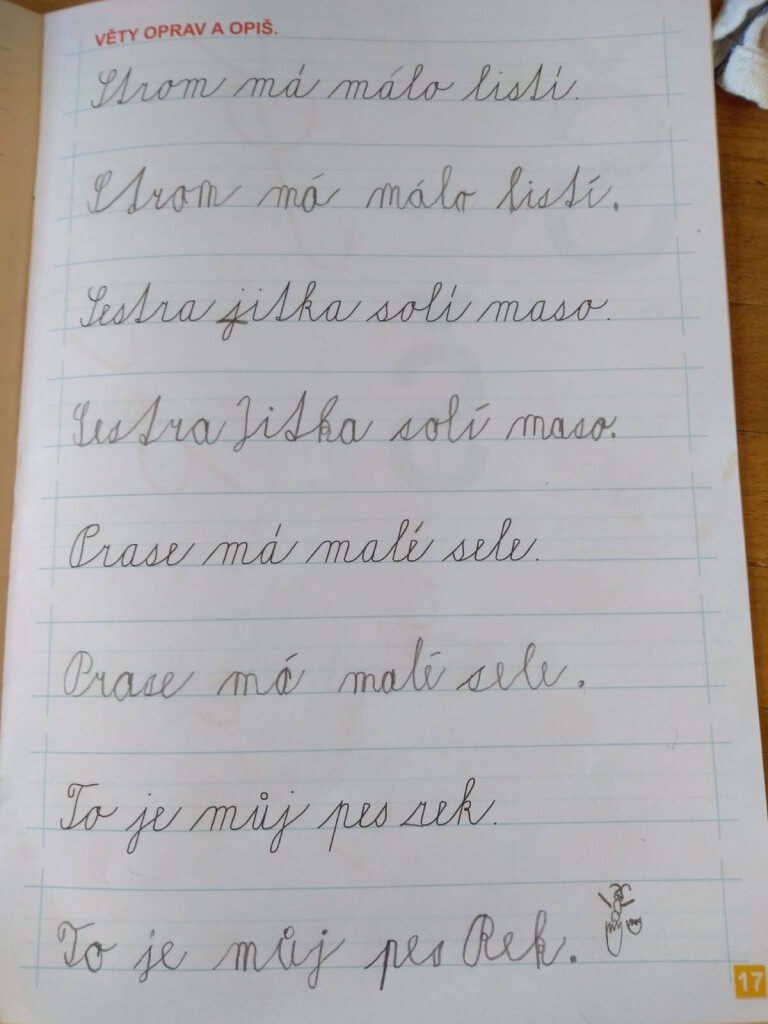 VĚTY OPRAV A OPIŠ.
Strom má málo listí.
Strom má málo listí.
Sestra jitka solí maso.
Sestra Jitka solí maso.
Prase má malé sele.
Prase má malé sele.
To je můj pes rek.
To je můj pes Rek.
17